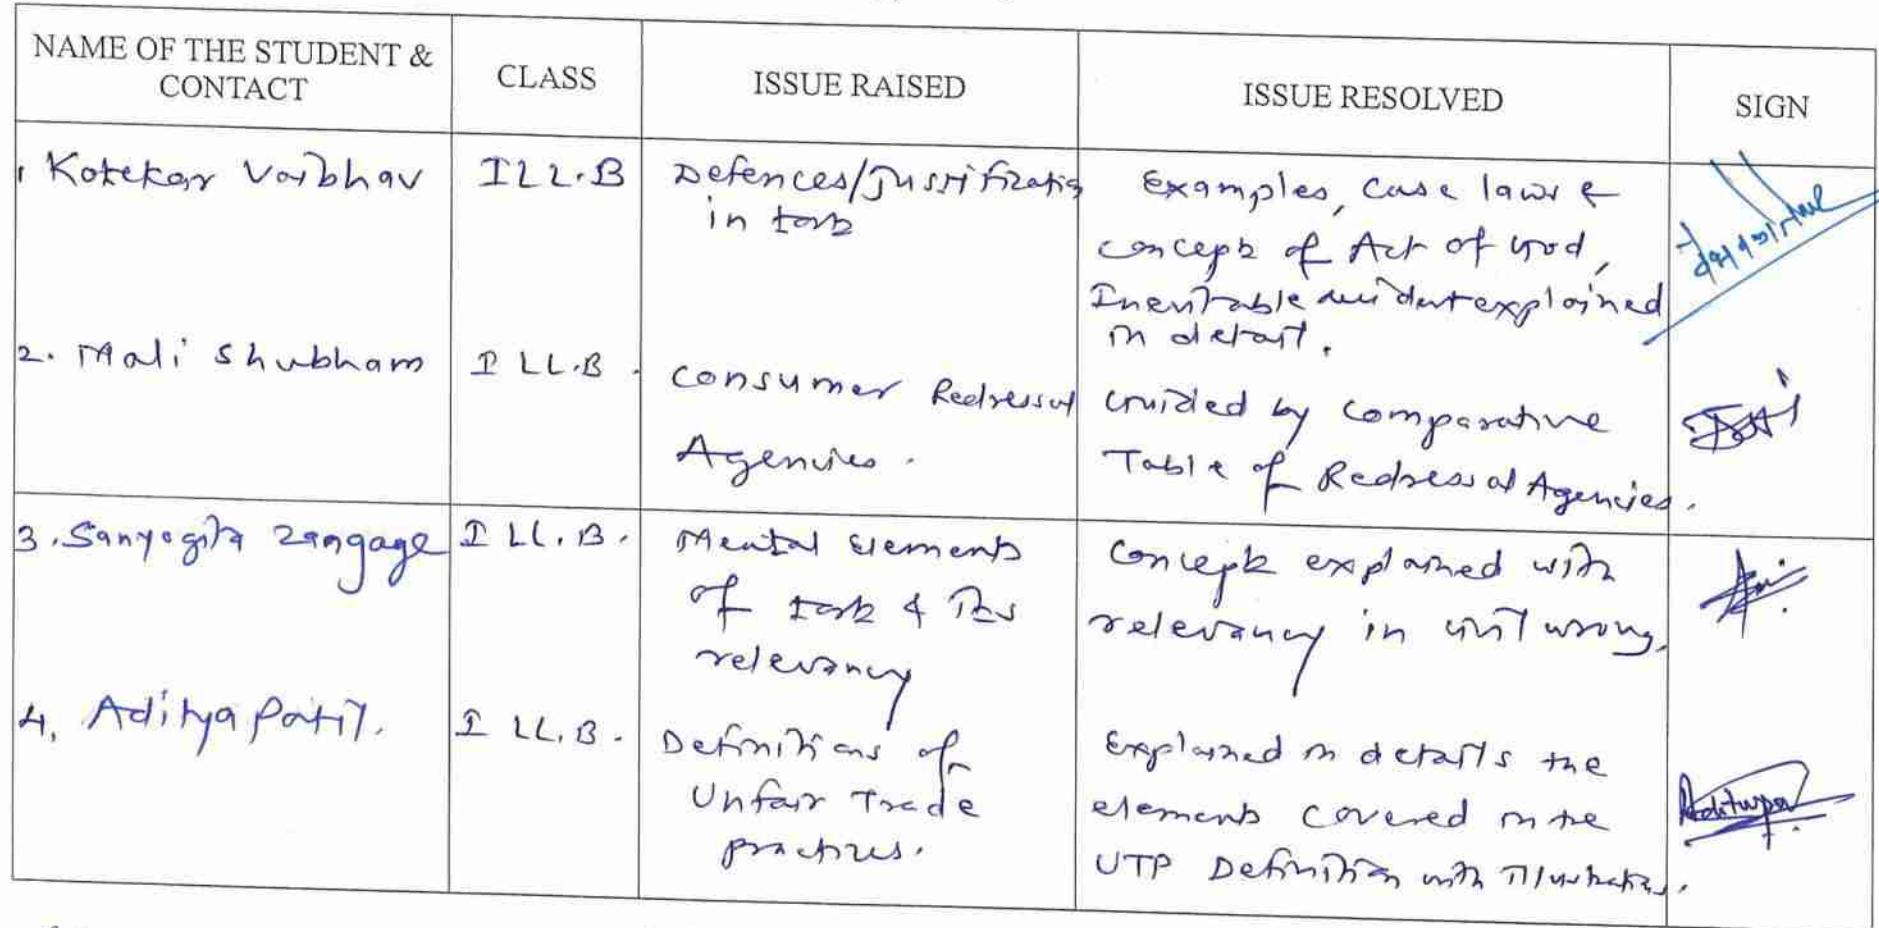 NAME OF THE STUDENT &
CONTACT
CLASS
ISSUE RAISED
ISSUE RESOLVED
SIGN
1 Kotekar Vaibhav
I LL.B
Defences/Justification
in tort
Examples, case laws &
concept of Act of God,
Inevitable accident explained
in detail.
2. Mali Shubham
I LL.B.
Consumer Redressal
Agencies.
Guided by Comparative
Table of Redressal Agencies.
3. Sanyogita Zangage
I LL.B.
Mental Elements
of tort & its
relevancy
Concept explained with
relevancy in civil wrong.
4. Aditya Patil.
I LL.B.
Definitions of
Unfair Trade
practices.
Explained in details the
elements covered in the
UTP Definition with illustrations.